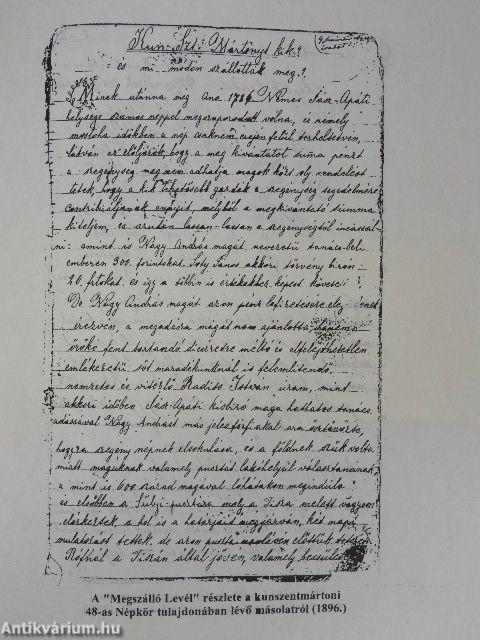 Kun-Szt: Mártonyt kik?
és mi módon szállották meg?
Minek utánna még Ano 17 Nemes Jász-Apáti
helysége számos néppel megszaporodott volna, és némely
mostoha időkben a nép csaknem erején felül terheltetvén,
látván az előljárók, hogy a meg kivántatot suma pénzt
a szegénység meg nem adhatja magok közt oly rendelést
tettek, hogy a kik tehetősebb gazdák a szegénység segedelmére
contribuáljanak annyit, melyből a megkivántató summa
kiteljen, és azután lassan-lassan a szegénységtől incassál
ni: amint is Nagy András magát nevezetű tanács-beli
emberen 300. forintokat Soty János akkori törvény biron
20. frtokat és igy a többin is értékekhez képest követel
De Nagy András magát azon pénz lefizetésére elég
érezvén, a megadásra magát nem ajánlotta hanem
örökké fent tartandó dicséretre méltó és elfelejthetetlen
emlékezetű sőt maradékunknál is felemlítendő
nemzetes és vitézlő Radits Istvan uram, mint
akkori időben Jász-Apáti kisbiró maga hathatós tanács
adásával Nagy Andrást más jeles férfiakal arra ösztönözte,
hogy a szegény népnek elsokulása, és a földnek szük volta
miatt maguknak valamely pusztát lakóhelyül választanának
a mint is 600 szárad magával lóhátakon megindult
és elsőbben a Fülyi-pusztára mely a Tisza mellett vagyon
elérkeztek, a hol is a határját megjárván, két napi
mulatozást tettek, de azon puszta
a Tiszán által jöven, valamely
A "Megszálló Levél" részlete a kunszentmártoni
48-as Népkör tulajdonában lévő másolatról (1896.)
Antikvárium.hu